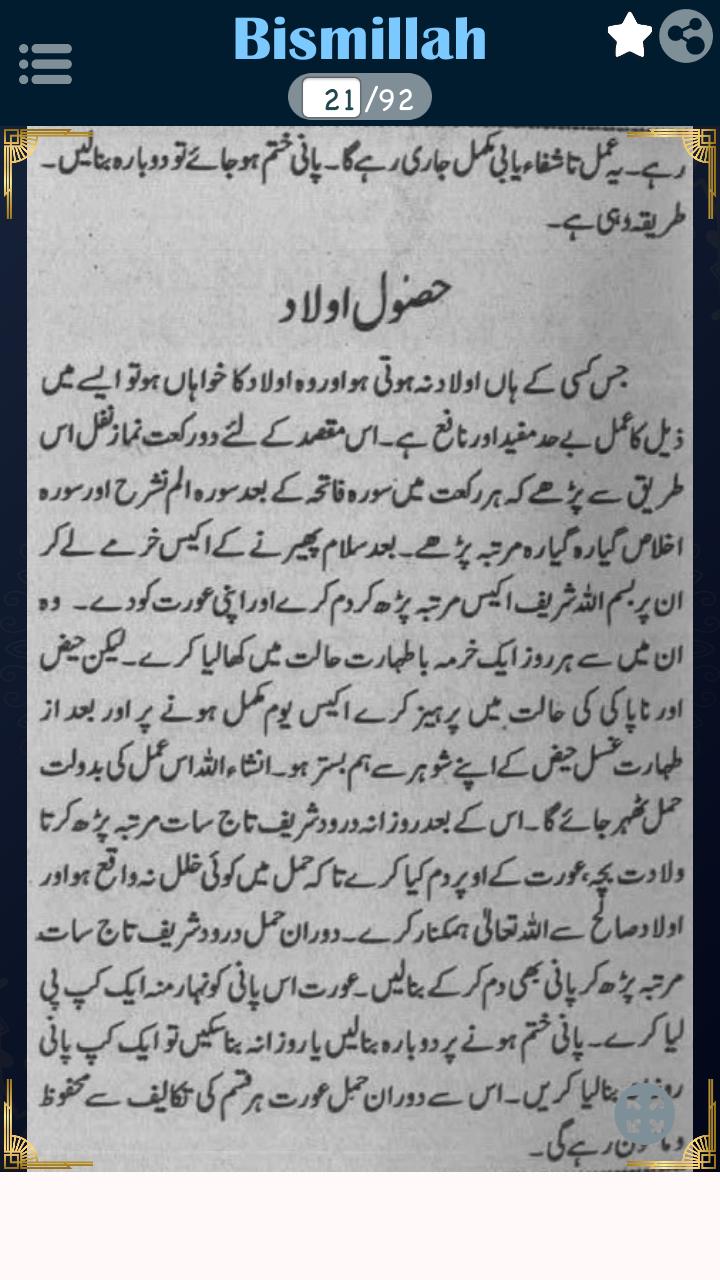 Bismillah
21/92
رہے۔ یہ عمل تا شفاء یابی مکمل جاری رہے گا۔ پانی ختم ہو جائے تو دوبارہ بنالیں۔
طریقہ وہی ہے۔
حصول اولاد
جس کسی کے ہاں اولاد نہ ہوتی ہو اور وہ اولاد کا خواہاں ہو تو ایسے میں
ذیل کا عمل بے حد مفید اور نافع ہے۔ اس مقصد کے لئے دو رکعت نماز نفل اس
طریق سے پڑھے کہ ہر رکعت میں سورہ فاتحہ کے بعد سورہ الم نشرح اور سورہ
اخلاص گیارہ گیارہ مرتبہ پڑھے۔ بعد سلام پھیرنے کے اکیس خرمے لے کر
ان پر بسم اللہ شریف اکیس مرتبہ پڑھ کر دم کرے اور اپنی عورت کو دے۔ وہ
ان میں سے ہر روز ایک خرمہ با طہارت حالت میں کھا لیا کرے۔ لیکن حیض
اور ناپاکی کی حالت میں پرہیز کرے اکیس یوم مکمل ہونے پر اور بعد از
طہارت غسل حیض کے اپنے شوہر سے ہم بستر ہو۔ انشاء اللہ اس عمل کی بدولت
حمل ٹھہر جائے گا۔ اس کے بعد روزانہ درود شریف تاج سات مرتبہ پڑھ کر تا
ولادت بچہ، عورت کے اوپر دم کیا کرے تاکہ حمل میں کوئی خلل نہ واقع ہو اور
اولاد صالح سے اللہ تعالیٰ ہمکنار کرے۔ دوران حمل درود شریف تاج سات
مرتبہ پڑھ کر پانی بھی دم کر کے بنالیں۔ عورت اس پانی کو نہار منہ ایک کپ پی
لیا کرے۔ پانی ختم ہونے پر دوبارہ بنالیں یا روزانہ بنا سکیں تو ایک کپ پانی
بنالیا کریں۔ اس سے دوران حمل عورت ہر قسم کی تکالیف سے محفوظ
رہے گی۔